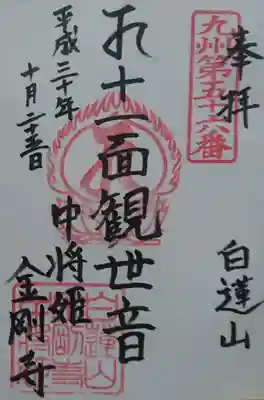 奉拝
九州第五十六番
白蓮山
十一面観世音
中将姫
金剛寺
平成二十年
十月二十五日